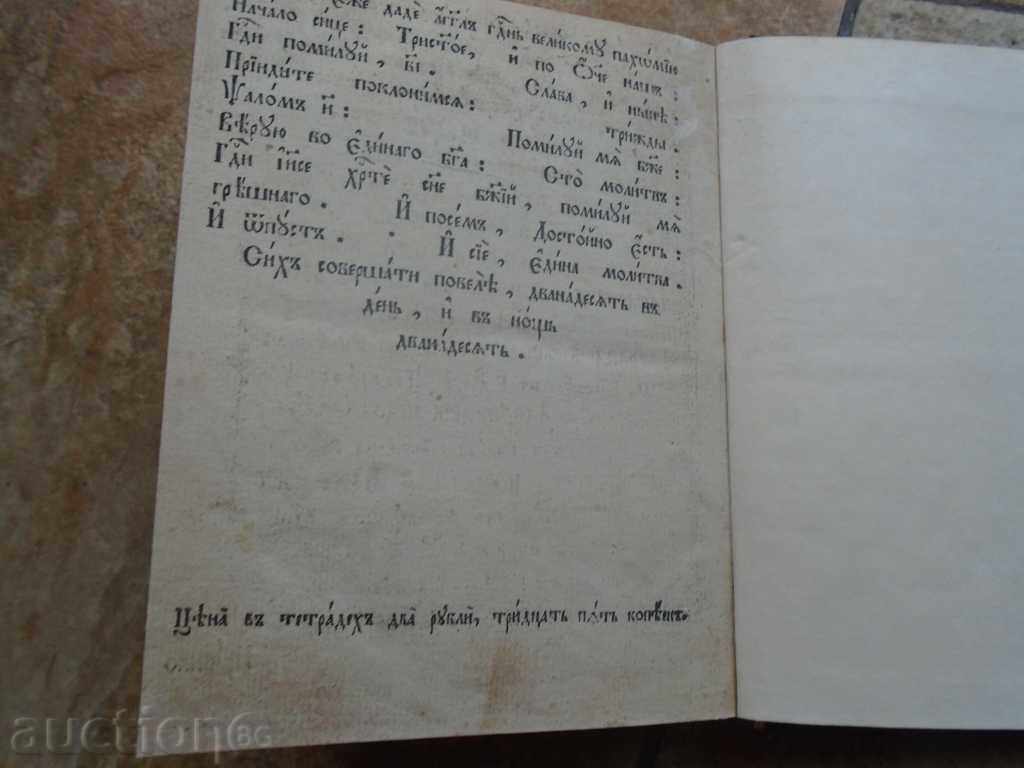 Е҆́же дадѐ а҆́гг҃лъ гдⷭ҇нь великому пахѡ́мїю
Начало си́це: Трист҃о́е, и҆ по Ѻ҆́ч҃е на́шъ:
Гдⷭ҇и поми́лꙋй, в҃і. Сла́ва, и҆ ны́нѣ:
Прїиди́те поклони́мся: три́жды.
Ѱало́мъ н҃: Поми́лꙋй мѧ̀ бж҃е:
Вѣ́рꙋю во є҆ди́наго бг҃а: Сто̀ моли́твъ:
Гдⷭ҇и і҆и҃се хрⷭ҇тѐ сн҃е бж҃їй, поми́лꙋй мѧ̀
грѣ́шнаго. И҆ посе́мъ, Досто́йно є҆́сть:
И҆ ѿпꙋ́стъ. И҆ сїѐ, є҆ди́на моли́тва.
Си́хъ соверша́ти повелѣ̀, двана́десѧть въ
де́нь, и҆ въ но́щь
двана́десѧть.
Цѣна̀ въ тетра́дехъ два̀ рꙋблѝ, три́дцать пѧ́ть копѣ́екъ.
auction.BG